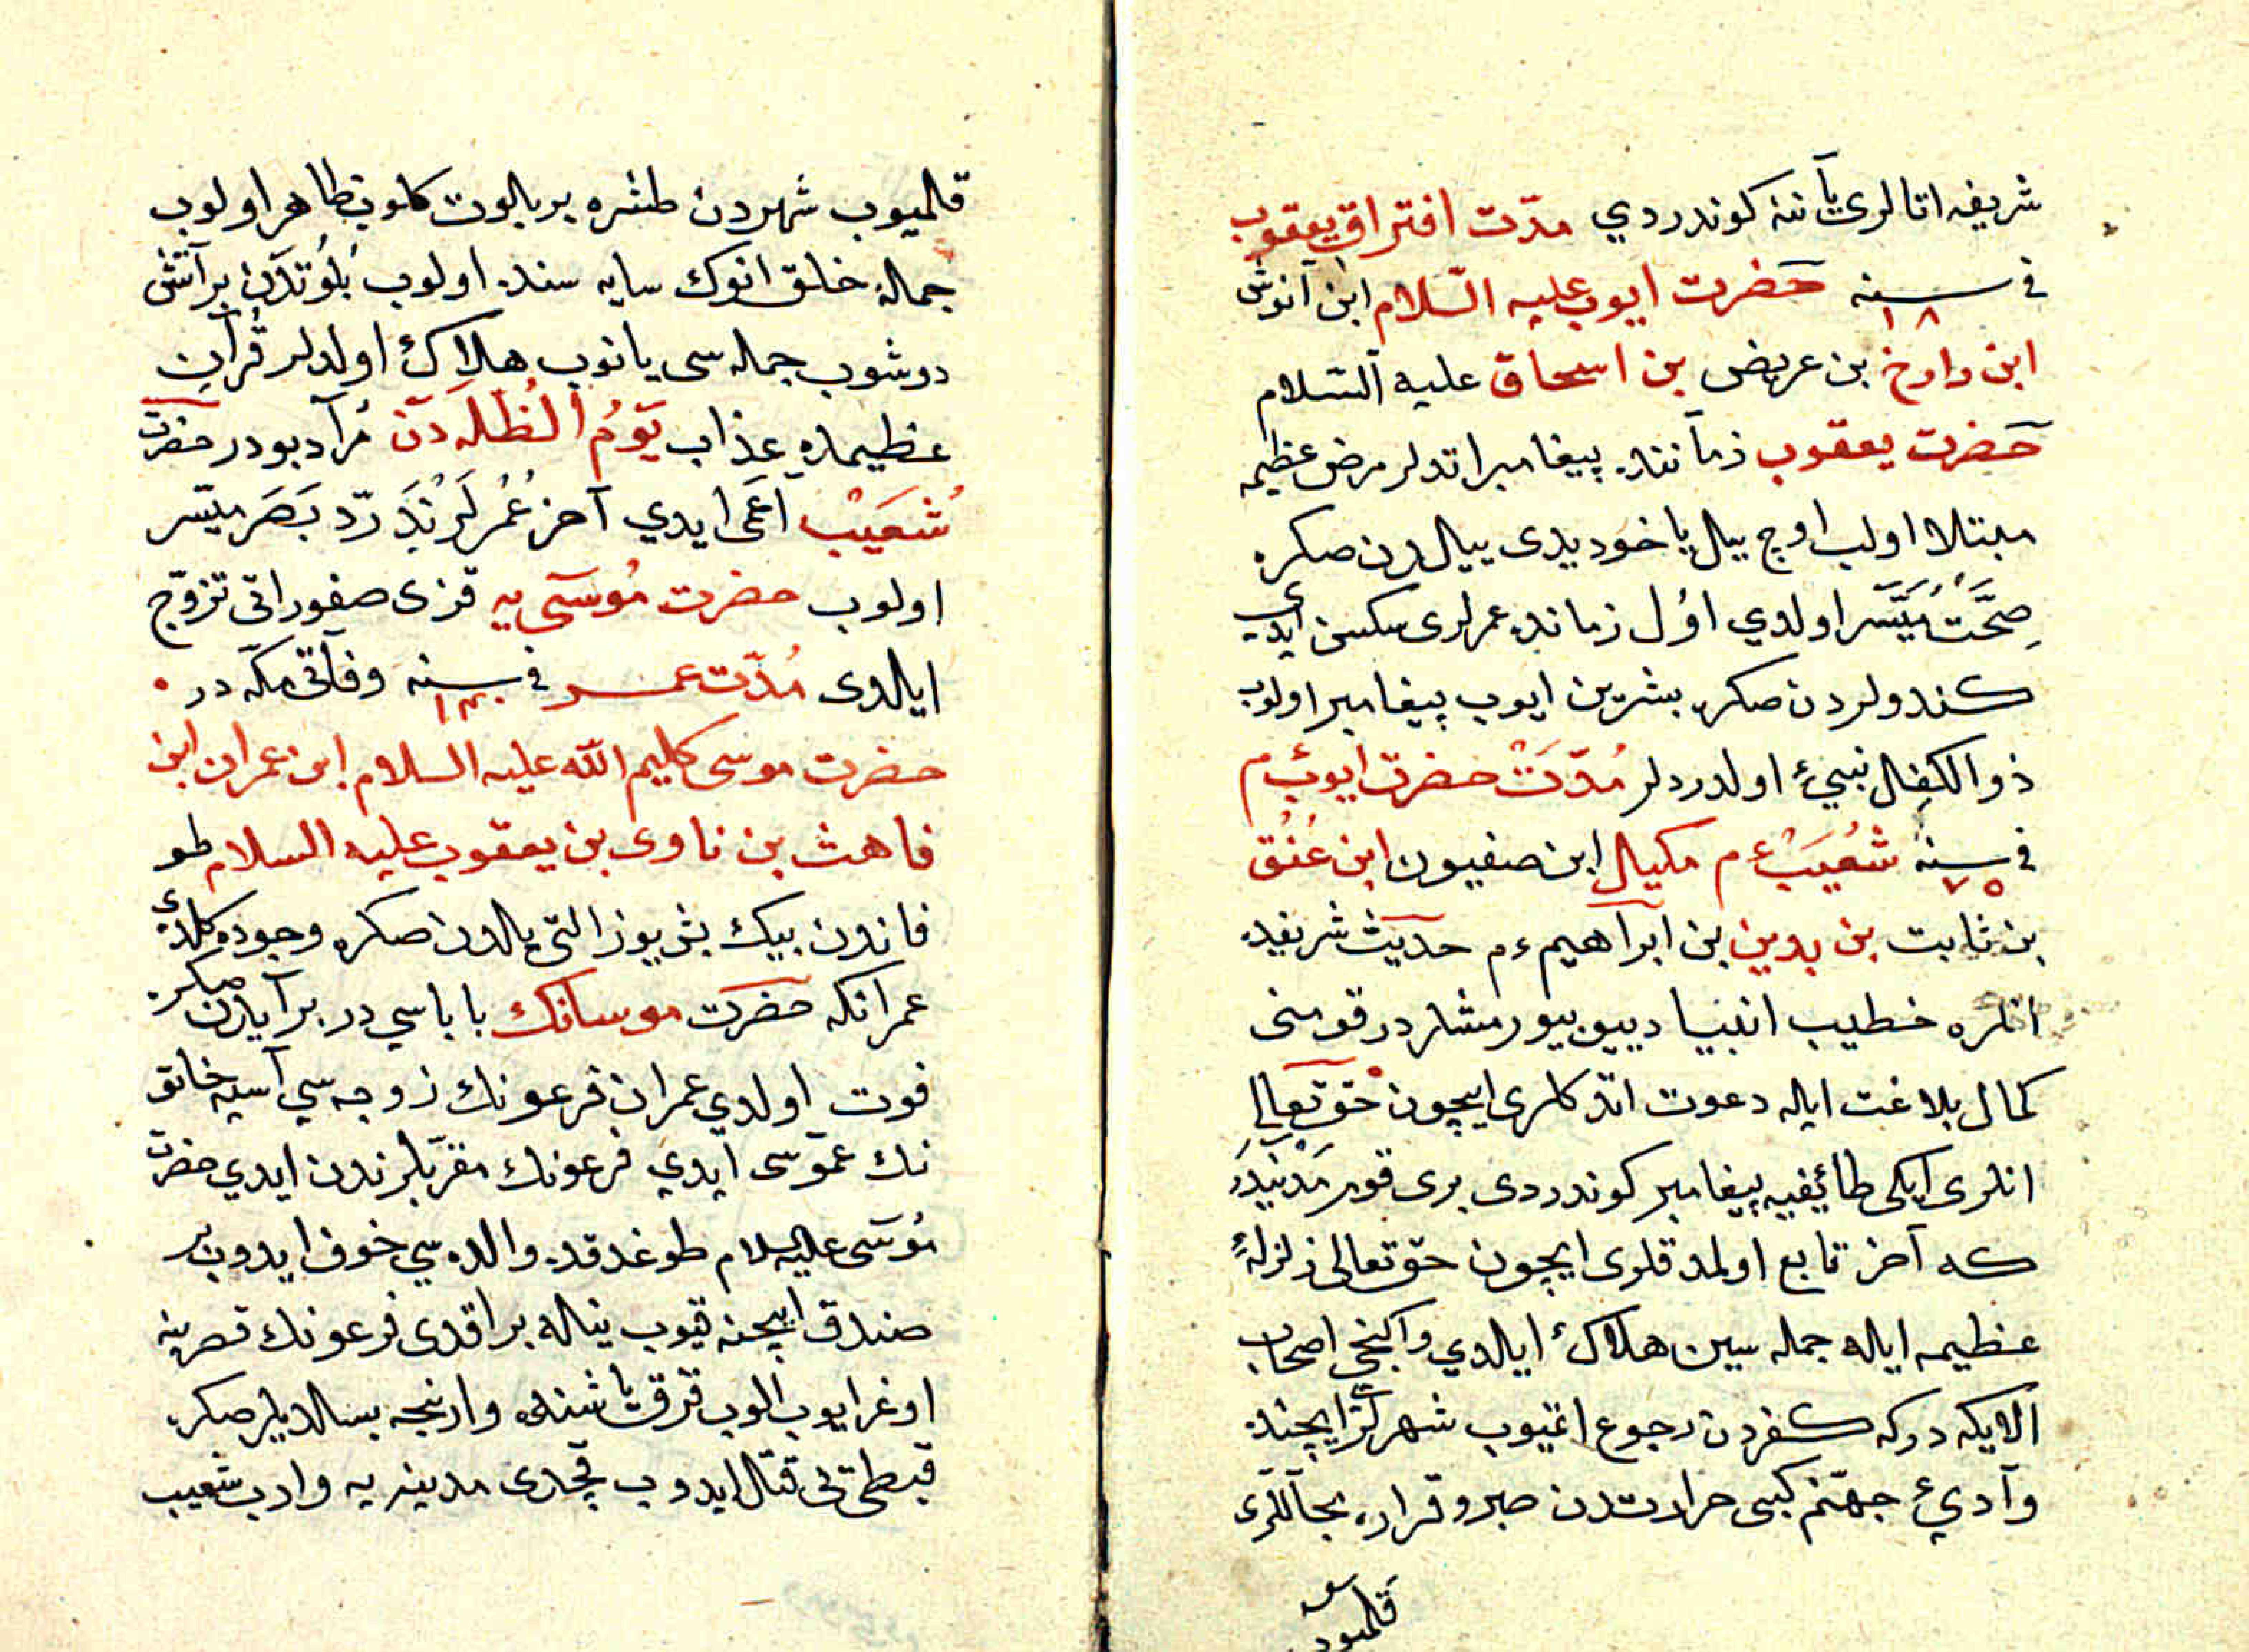 شريفه اتالرى يآننه كوندردي مدّت افتراق يعقوب
فى سنه ١٨ حضرت ايوب عليه السّلام ابن آنوش
ابن راوخ بن عريض بن اسحاق عليه السّلام
حضرت يعقوب زمآننده پيغامبر اتدلر مرض عظيمه
مبتلا اولب اوچ ييل ياخود يدى ييلدن صكره
صحّت ميسّر اولدي اوّل زمانده عمرلرى سكسن ايدى
كندولردن صكره بشر بن ايوب پيغامبر اولوب
ذو الكفل نبيء اولدردلر مُدّت حضرت ايوب ءم
فى سنه ٧٥ شُعَيب ءم مكيال ابن صفيون ابن عُنُق
بن ثابت بن بدين بن ابراهيم ءم حديث شريفده
انلره خطيب انبيا دييو بيورمشلردر قومنى
كمال بلاغت ايله دعوت اتدكلرى ايچون حق تعالى
انلرى ايكى طائيفيه پيغامبر كوندردى برى قوم مَدْيَندر
كه آخر تابع اولمدقلرى ايچون حق تعالى زلزلهٔ
عظيمه ايله جمله سين هلاك ايلدي وايكنجى اصحاب
الايكه دركه كفردن رجوع اتميوب شهرلرّ ايچنده
وآدىء جهنّم كبى حرارتدن صبر وقراره مجآللرى
قلميوب
قلميوب شهردن طشره بر بلوت كلوب ظاهر اولوب
جمله خلق انوك سايه سنده اولوب بُلُوتدَن بر آتش
دوشوب جمله سى يانوب هلاك اولدلر قُرآنِ
عظيمده عذاب يَوْمُ الظُّلَّه دَن مُرآد بودر حضرت
شُعَيْب اعمى ايدي آخر عُمُرلَرنْدَ رَدّ بَصَر ميسّر
اولوب حضرت مُوسَى يه قزى صفوراتى تزوّج
ايلدى مُدّت عمر فى سنه ١٤٠ وفآتى مكّه در
حضرت موسى كليم الله عليه السلام ابن عمران ابن
فاهث بن ناوى بن يعقوب عليه السلام طو
فاندن بيك بش يوز التى يلدن صكره وجوده كلدى
عمرانكه حضرت موسانك باباسي در بر آيدن صكره
فوت اولدي عمران فرعونك زوجه سي آسيه خاتو
نك عموسى ايدي فرعونك مقرّبلرندن ايدي حضرت
مُوسَى عليه السلام طوغدقده والده سي خوف ايدوب بر
صندق ايچنه قيوب نيله براقدى فرعونك قصرينه
اوغرايوب الوب قرق ياشنده وارنجه بسلديلر صكره
قبطى تى قتل ايدوب قچدى مدينه يه وارب شعيب